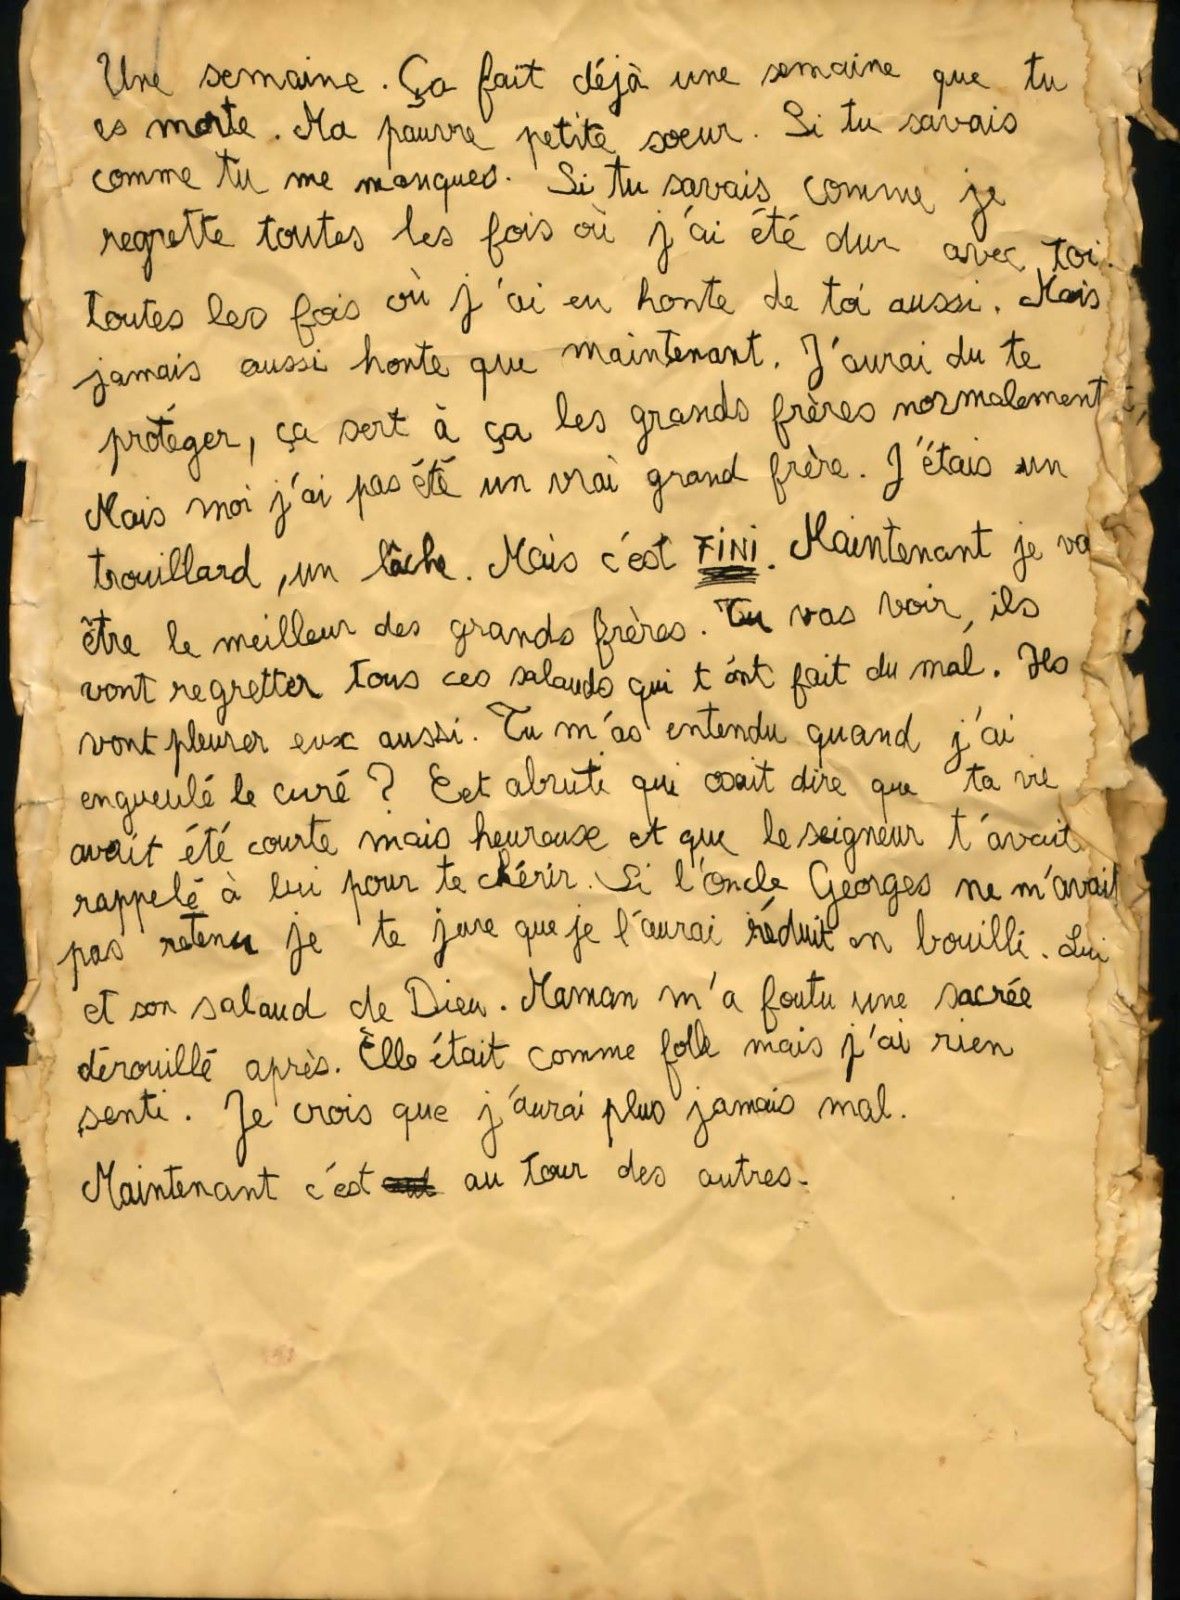 Une semaine. Ça fait déjà une semaine que tu
es morte. Ma pauvre petite soeur. Si tu savais
comme tu me manques. Si tu savais comme je
regrette toutes les fois où j'ai été dur avec toi.
toutes les fois où j'ai eu honte de toi aussi. Mais
jamais aussi honte que maintenant. J'aurai du te
protéger, ça sert à ça les grands frères normalement
Mais moi j'ai pas été un vrai grand frère. J'étais un
trouillard, un lâche. Mais c'est FiNi. Maintenant je va
être le meilleur des grands frères. Tu vas voir, ils
vont regretter tous ces salauds qui t'ont fait du mal. Ils
vont pleurer eux aussi. Tu m'as entendu quand j'ai
engueulé le curé ? Cet abruti qui osait dire que ta vie
avait été courte mais heureuse et que le seigneur t'avait
rappelé à lui pour te chérir. Si l'oncle Georges ne m'avait
pas retenu je te jure que je l'aurai réduit en bouilli. Lui
et son salaud de Dieu. Maman m'a foutu une sacrée
dérouillé après. Elle était comme folle mais j'ai rien
senti. Je crois que j'aurai plus jamais mal.
Maintenant c'est au tour des autres.